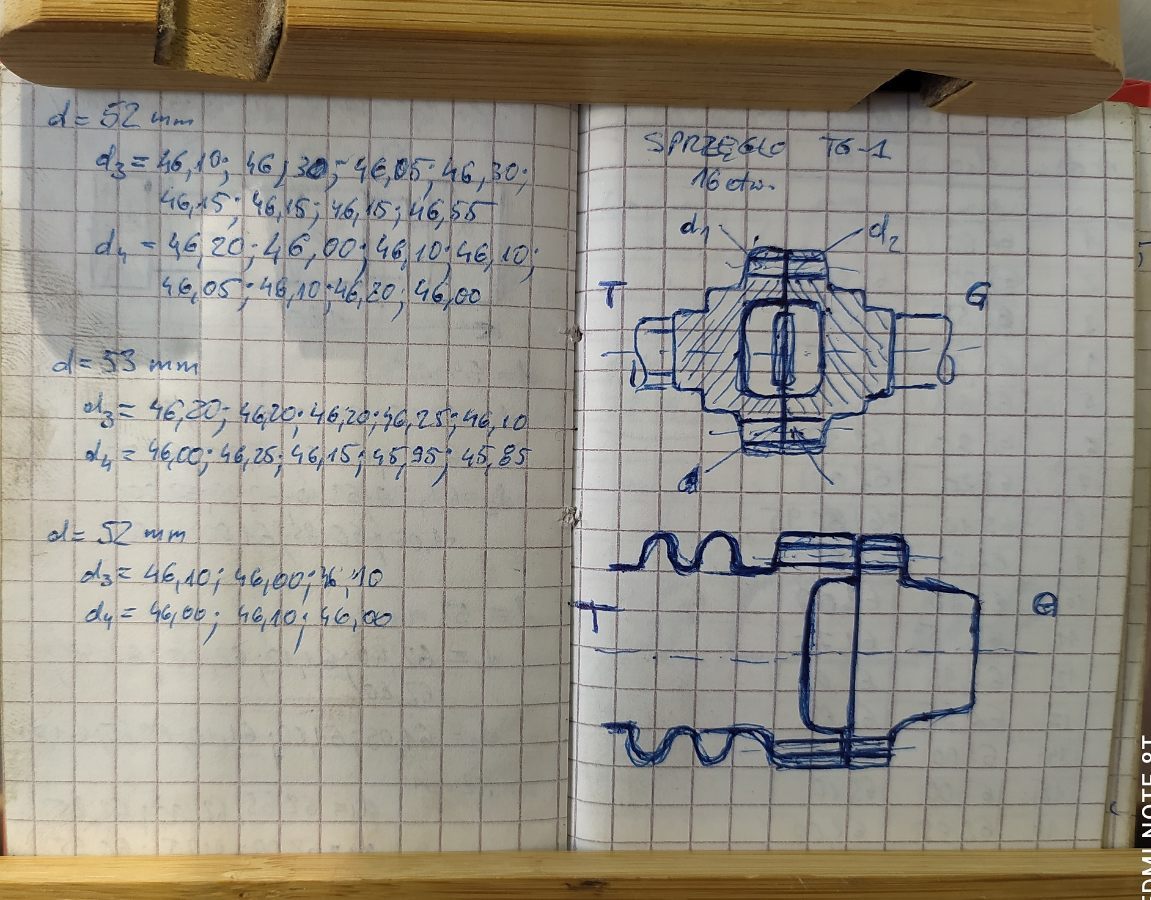 d = 52 mm
d3 = 46,10; 46,30; 46,05; 46,30;
46,15; 46,15; 46,15; 46,55
d4 = 46,20; 46,00; 46,10; 46,10;
46,05; 46,10; 46,20; 46,00
d = 53 mm
d3 = 46,20; 46,20; 46,20; 46,25; 46,10
d4 = 46,00; 46,25; 46,15; 45,95; 45,85
d = 52 mm
d3 = 46,10; 46,00; 46,10
d4 = 46,00; 46,10; 46,00
SPRZĘGŁO TG-1
16 otw.
d1 d2
T G
d
T G
REDMI NOTE 8T